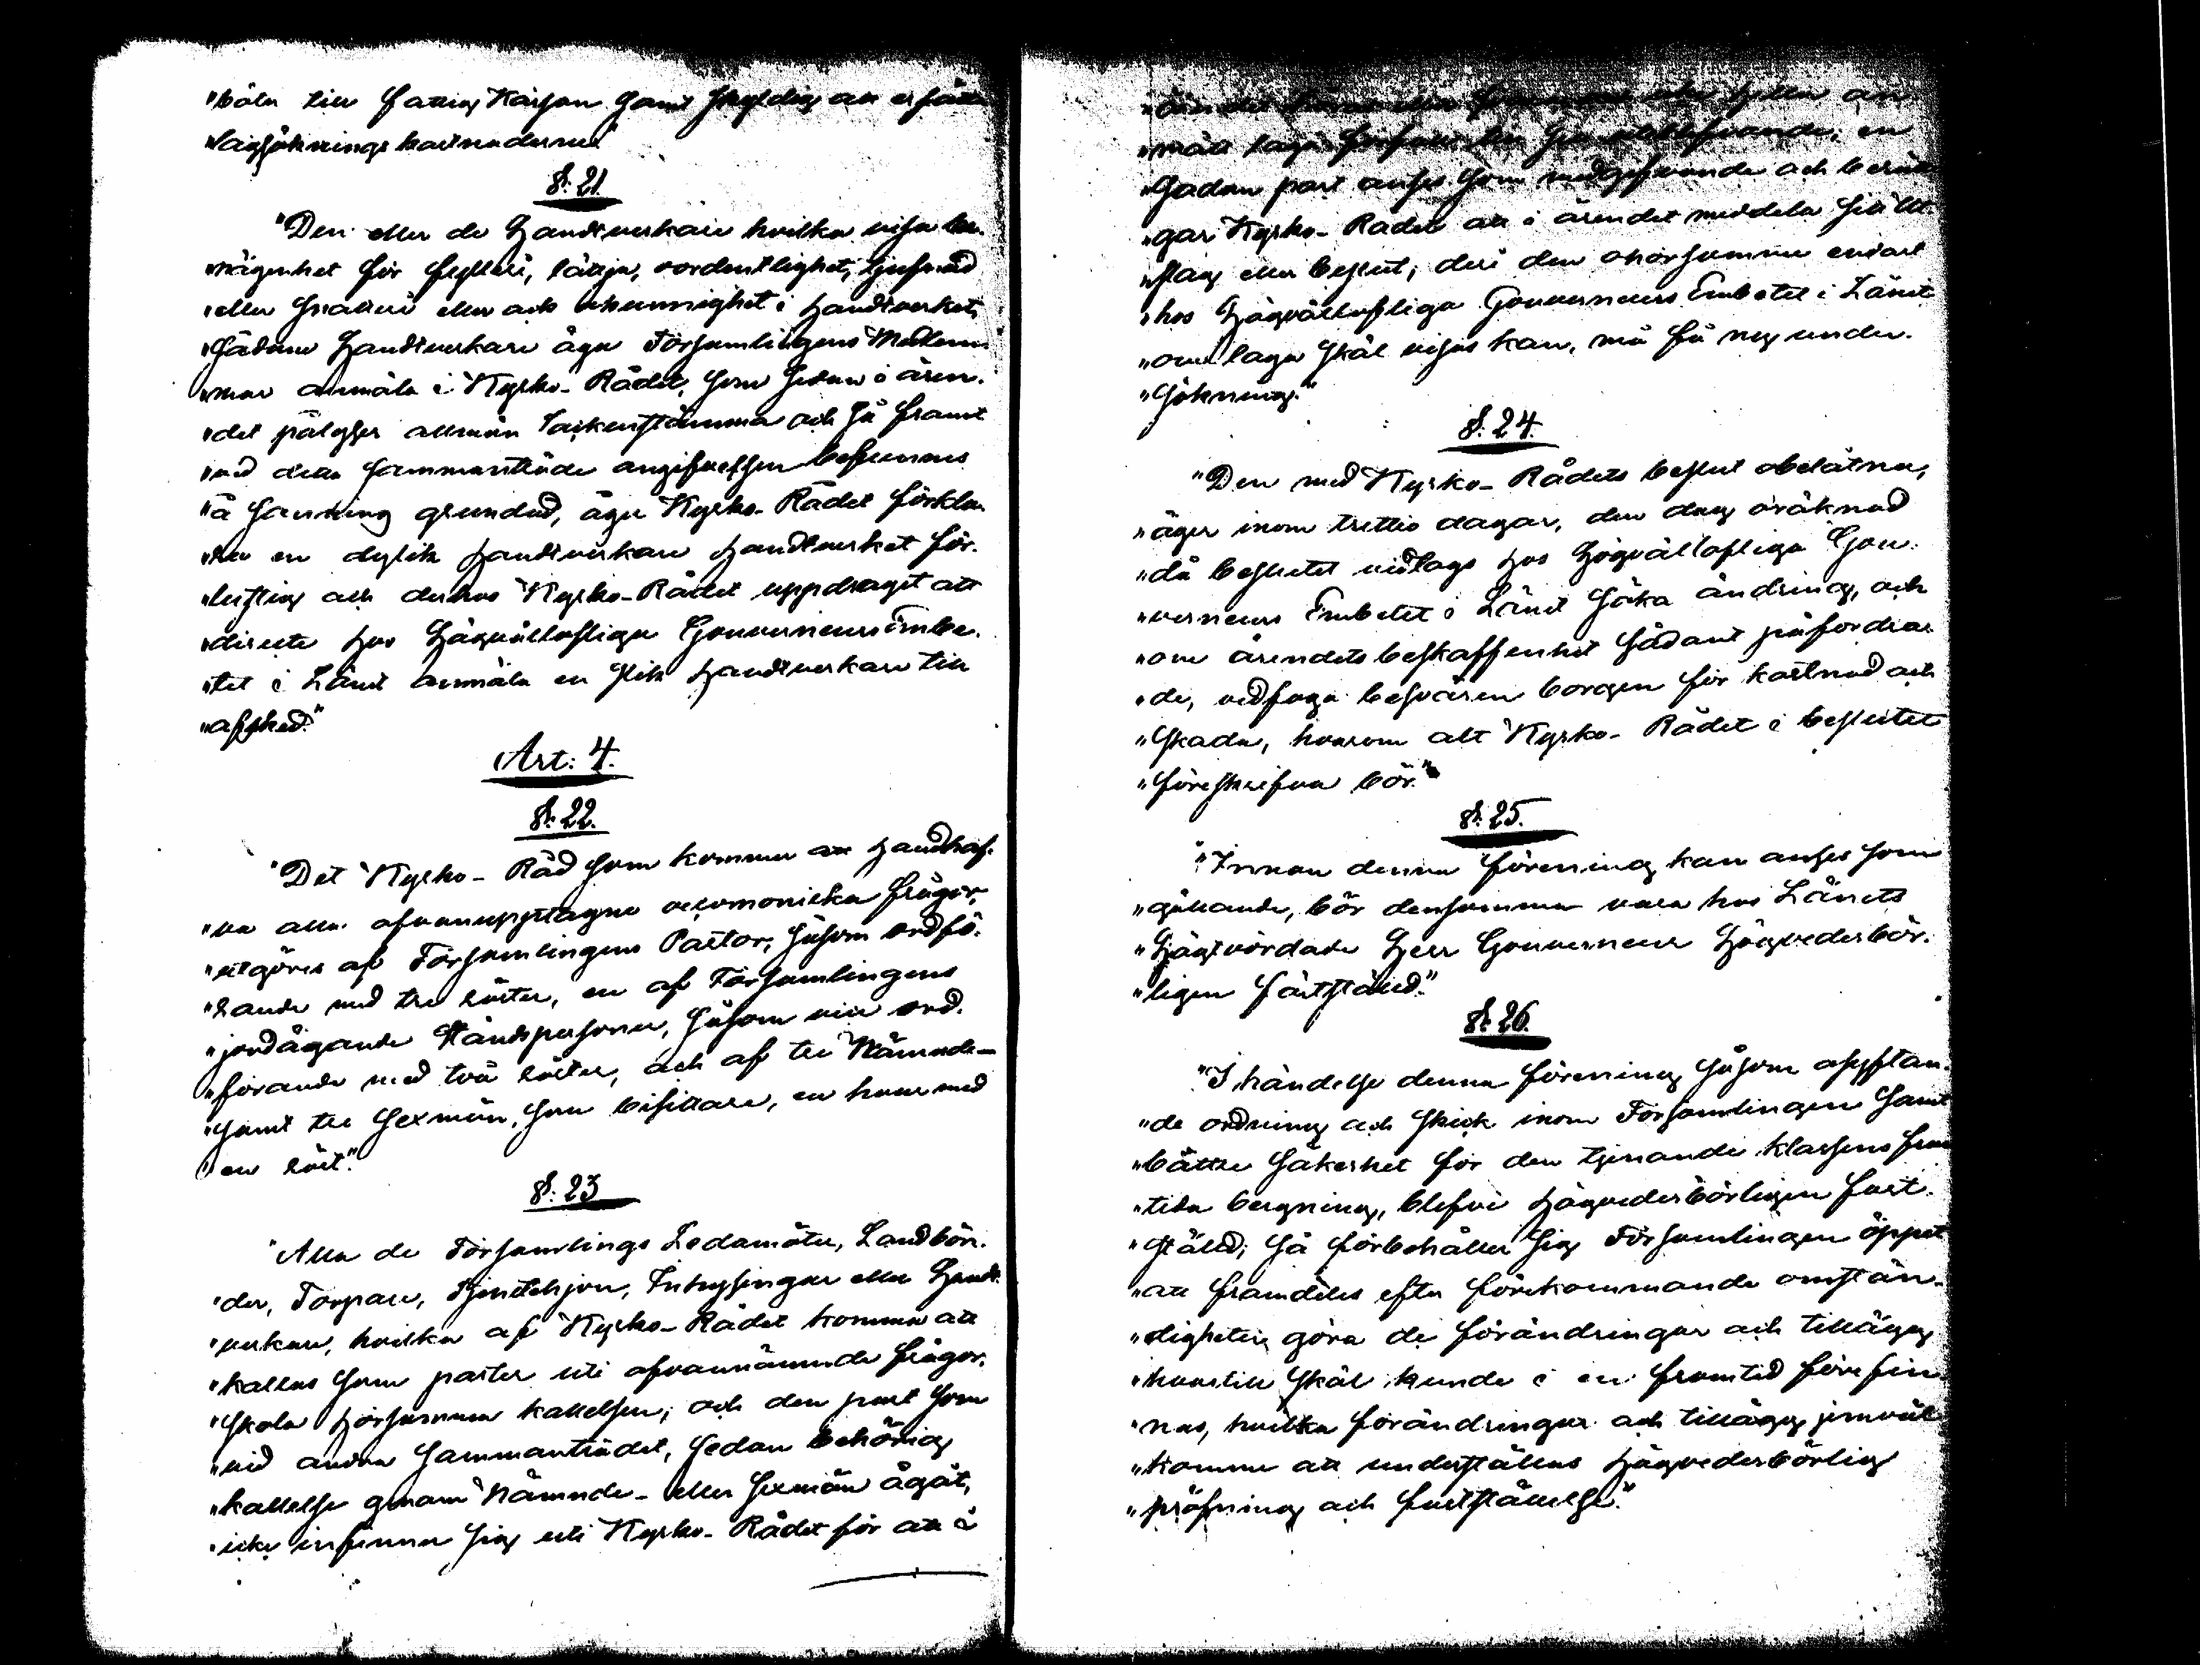 "böta till Fattig Kassan samt skyldig att ersätta
"lagsöknings kostnaderne."
§: 21
"Den eller de Handtverkare hvilka visa be-
"nägenhet för fylleri, lättja, oordentlighet, tjufnad
"eller snatteri eller ock okunnighet i handtverket,
"sådane Handtverkare äga Församlingens Medlem-
"mar anmäla i Kyrko-Rådet, som sedan i ären-
"det pålyser allmän Sockenstämma och så framt
"vid detta sammanträde angifvelsen befinnes
"å sanning grundad, äge Kyrko-Rådet förkla-
"ra en dylik handtverkare handtverket för-
"lustig och derhos Kyrko-Rådet uppdraget att
"directe hos Högvällofliga Gouverneurs Embe-
"tet i Länet anmäla en slik handtverkare till
"afsked."
Art: 4.
§: 22.
"Det Kyrko-Råd som kommer att handhaf-
"va alla ofvanupptagne oeconomiska frågor,
"utgöres af Församlingens Pastor, såsom ordfö-
"rande med tre röster, en af Församlingens
"jordägande Ståndspersoner, såsom vice ord-
"förande med två röster, och af tre Nämnde-
"samt tre Sexmän, som bisittare, en hvar med
"en röst."
§: 23
"Alla de Församlings Ledamöter, Landbön-
"der, Torpare, Tjenstehjon, Inhysingar eller Handt-
"verkare, hvilka af Kyrko-Rådet komma att
"kallas som parter uti ofvannämnde frågor,
"skola hörsamma kallelsen; och den part som
"vid andra sammanträdet, sedan behörig
"kallelse genom Nämnde- eller Sexmän ägat,
"icke infinner sig uti Kyrko-Rådet för att i
"ärendet höras eller
"mält laga förfall
"sådan part anses som medgifvande och berätti-
"gar Kyrko-Rådet att i ärendet meddela sitt ut-
"slag eller beslut; deri den ohörsamme endast
"hos Högvällofliga Gouverneurs Embetet i Länet
"om laga skäl visas kan, må få ny under-
"sökning."
§: 24.
"Den med Kyrko-Rådets beslut obelåtne,
"äger inom trettio dagar, den dag oräknad
"då beslutet vidtags hos Högvällofliga Gou-
"verneurs Embetet i Länet söka ändring, och
"om ärendets beskaffenhet sådant påfordra-
"de, vidfoga besvären borgen för kostnad och
"skada, hvarom alt Kyrko-Rådet i beslutet
"föreskrifva bör."
§: 25.
"Innan denna förening kan anses som
"gällande, bör densamma vara hos Länets
"Högtvördade Herr Gouverneur Högvederbör-
"ligen fastställd."
§: 26.
"I händelse denna förening såsom afsyftan-
"de ordning och skick inom Församlingen samt
"bättre säkerhet för den tjenande klassens fram-
"tida bergning, blefve högvederbörligen fast-
"ställd; så förbehåller sig Församlingen öppet
"att framdeles efter förekommande omstän-
"digheter göra de förändringar och tillägg
"hvartill skäl kunde i en framtid förefin-
"nas, hvilka förändringar och tillägg jemväl
"komme att underställas högvederbörlig
"pröfning och fastställelse."